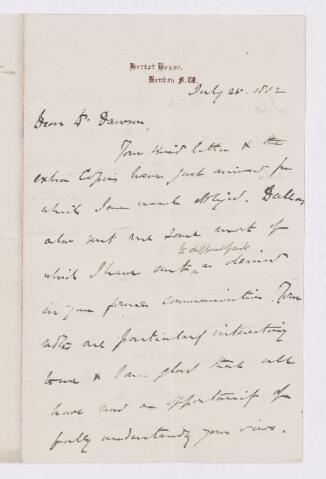 House,
London N.W.
July 28. 1882
Dear Dr. Dawson,
Your kind letter & the
extra Copies have just arrived, for
which I am much obliged. Dallas
also sent me some most of
to different friends
which I have sent as desired
in your former communication. Your
notes are particularly interesting
to me & I am glad that all
have now an opportunity of
fully understanding your views.